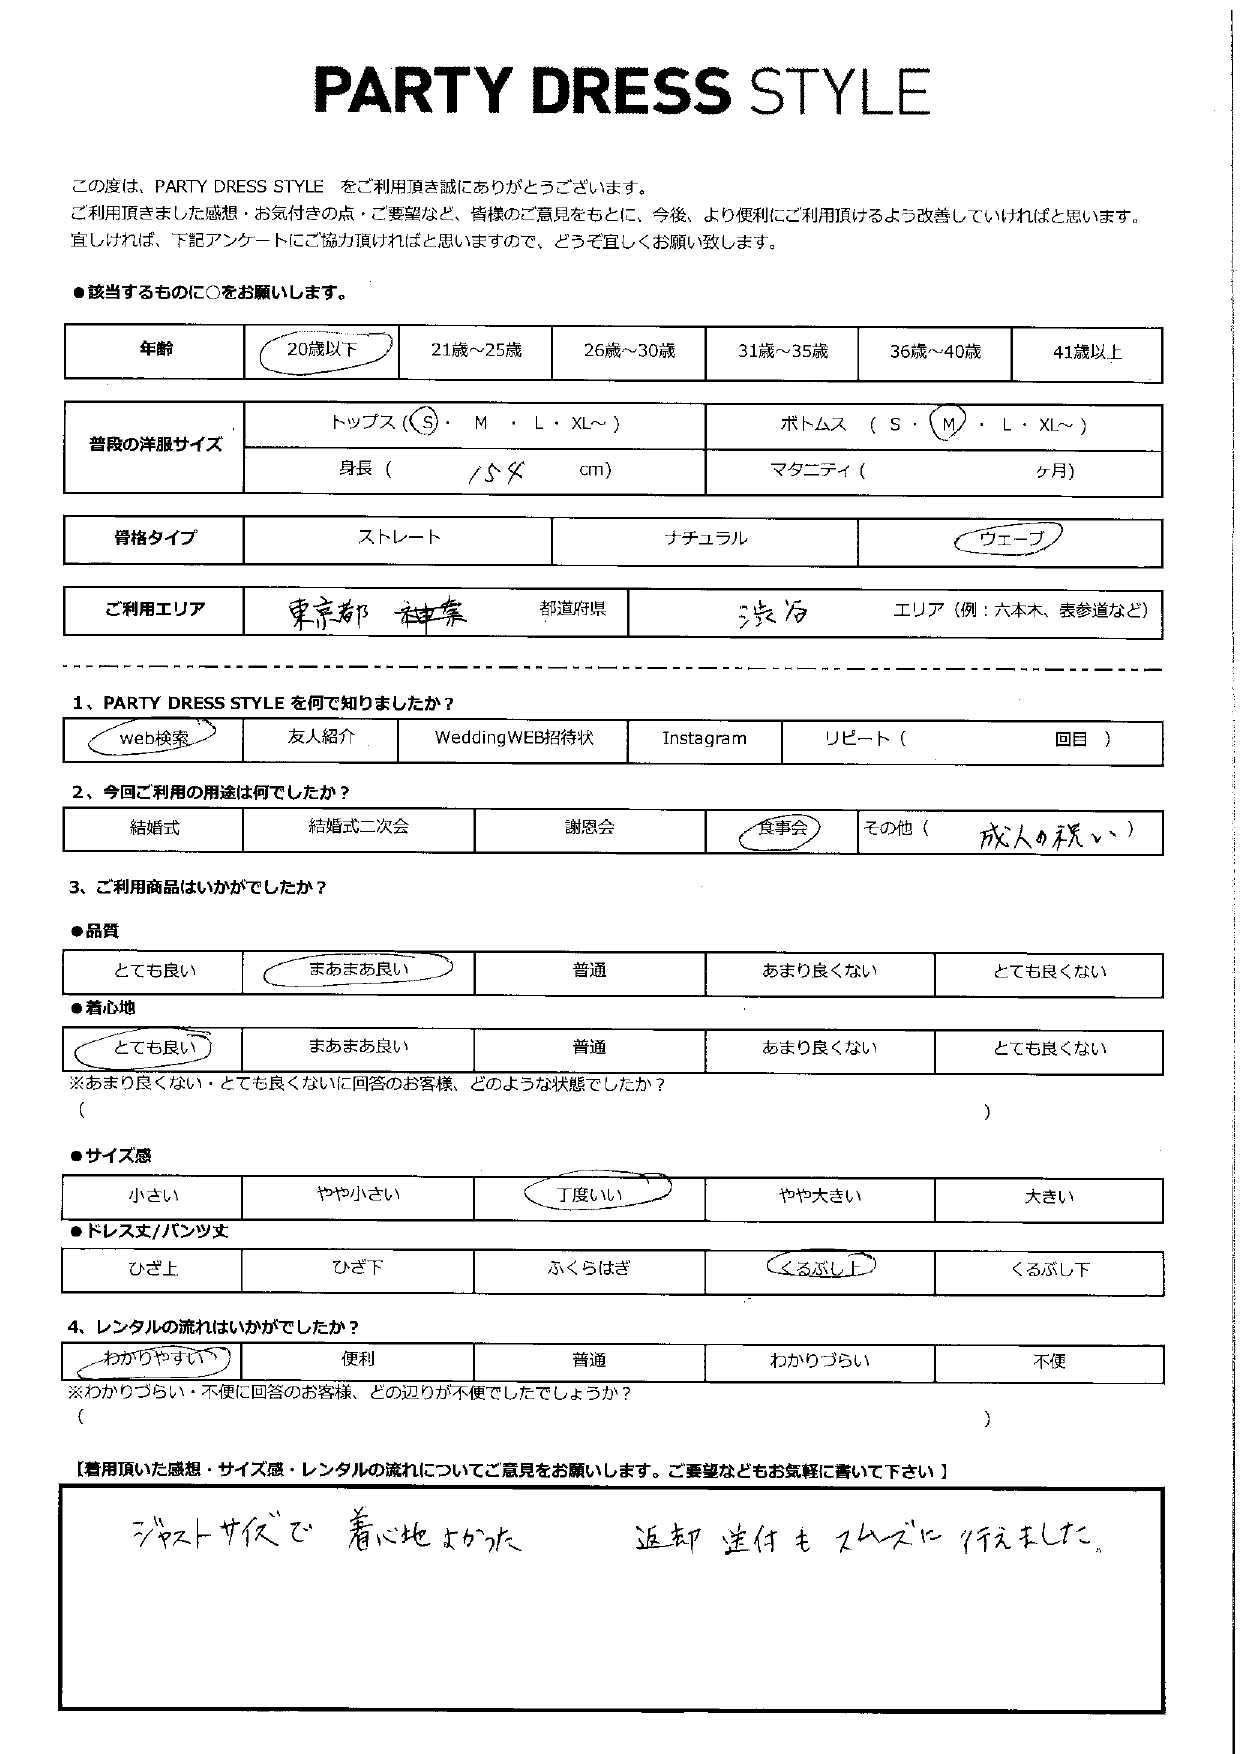 PARTY DRESS STYLE
この度は、PARTY DRESS STYLE をご利用頂き誠にありがとうございます。
ご利用頂きました感想・お気付きの点・ご要望など、皆様のご意見をもとに、今後、より便利にご利用頂けるよう改善していければと思います。
宜しければ、下記アンケートにご協力頂ければと思いますので、どうぞ宜しくお願い致します。
●該当するものに○をお願いします。
年齢 20歳以下 21歳～25歳 26歳～30歳 31歳～35歳 36歳～40歳 41歳以上
普段の洋服サイズ トップス (S ・ M ・ L ・ XL～ ) ボトムス ( S ・ M ・ L ・ XL～ )
身長 ( 154 cm) マタニティ ( ヶ月)
骨格タイプ ストレート ナチュラル ウェーブ
ご利用エリア 東京都 神奈 都道府県 渋谷 エリア（例：六本木、表参道など）
1、PARTY DRESS STYLE を何で知りましたか？
web検索 友人紹介 WeddingWEB招待状 Instagram リピート ( 回目 )
2、今回ご利用の用途は何でしたか？
結婚式 結婚式二次会 謝恩会 食事会 その他 ( 成人の祝い )
3、ご利用商品はいかがでしたか？
●品質
とても良い まあまあ良い 普通 あまり良くない とても良くない
●着心地
とても良い まあまあ良い 普通 あまり良くない とても良くない
※あまり良くない・とても良くないに回答のお客様、どのような状態でしたか？
( )
●サイズ感
小さい やや小さい 丁度いい やや大きい 大きい
●ドレス丈/パンツ丈
ひざ上 ひざ下 ふくらはぎ くるぶし上 くるぶし下
4、レンタルの流れはいかがでしたか？
わかりやすい 便利 普通 わかりづらい 不便
※わかりづらい・不便に回答のお客様、どの辺りが不便でしたでしょうか？
( )
【着用頂いた感想・サイズ感・レンタルの流れについてご意見をお願いします。ご要望などもお気軽に書いて下さい 】
ジャストサイズで 着心地よかった 返却 送付も スムズに 行えました。